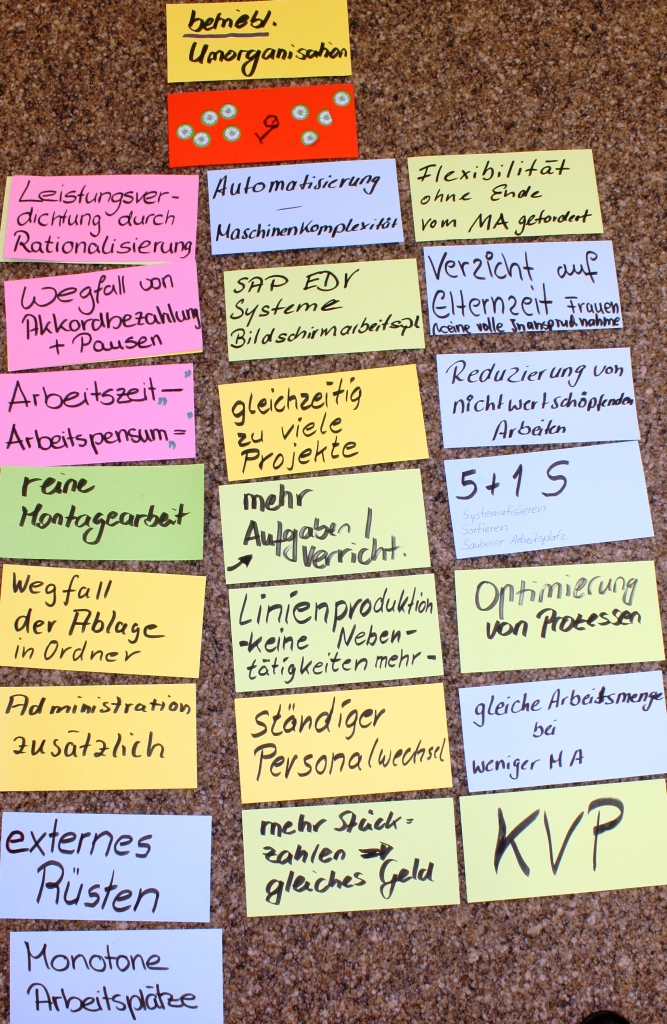 betriebl.
Umorganisation
9
Leistungsver-
dichtung durch
Rationalisierung
Wegfall von
Akkordbezahlung
+ Pausen
Arbeitszeit –"
Arbeitspensum ="
reine
Montagearbeit
Wegfall
der Ablage
in Ordner
Administration
zusätzlich
externes
Rüsten
Monotone
Arbeitsplätze
Automatisierung
–
Maschinenkomplexität
SAP EDV
Systeme
Bildschirmarbeitspl
gleichzeitig
zu viele
Projekte
mehr
Aufgaben /
→ Verricht.
Linienproduktion
-keine Neben-
tätigkeiten mehr -
ständiger
Personalwechsel
mehr Stück=
zahlen →
gleiches Geld
Flexibilität
ohne Ende
vom MA gefordert
Verzicht auf
Elternzeit Frauen
keine volle Inanspruchnahme
Reduzierung von
nicht wertschöpfenden
Arbeiten
5 + 1 S
Systematisieren
Sortieren
Sauberer Arbeitsplatz
Optimierung
von Prozessen
gleiche Arbeitsmenge
bei
weniger MA
KVP